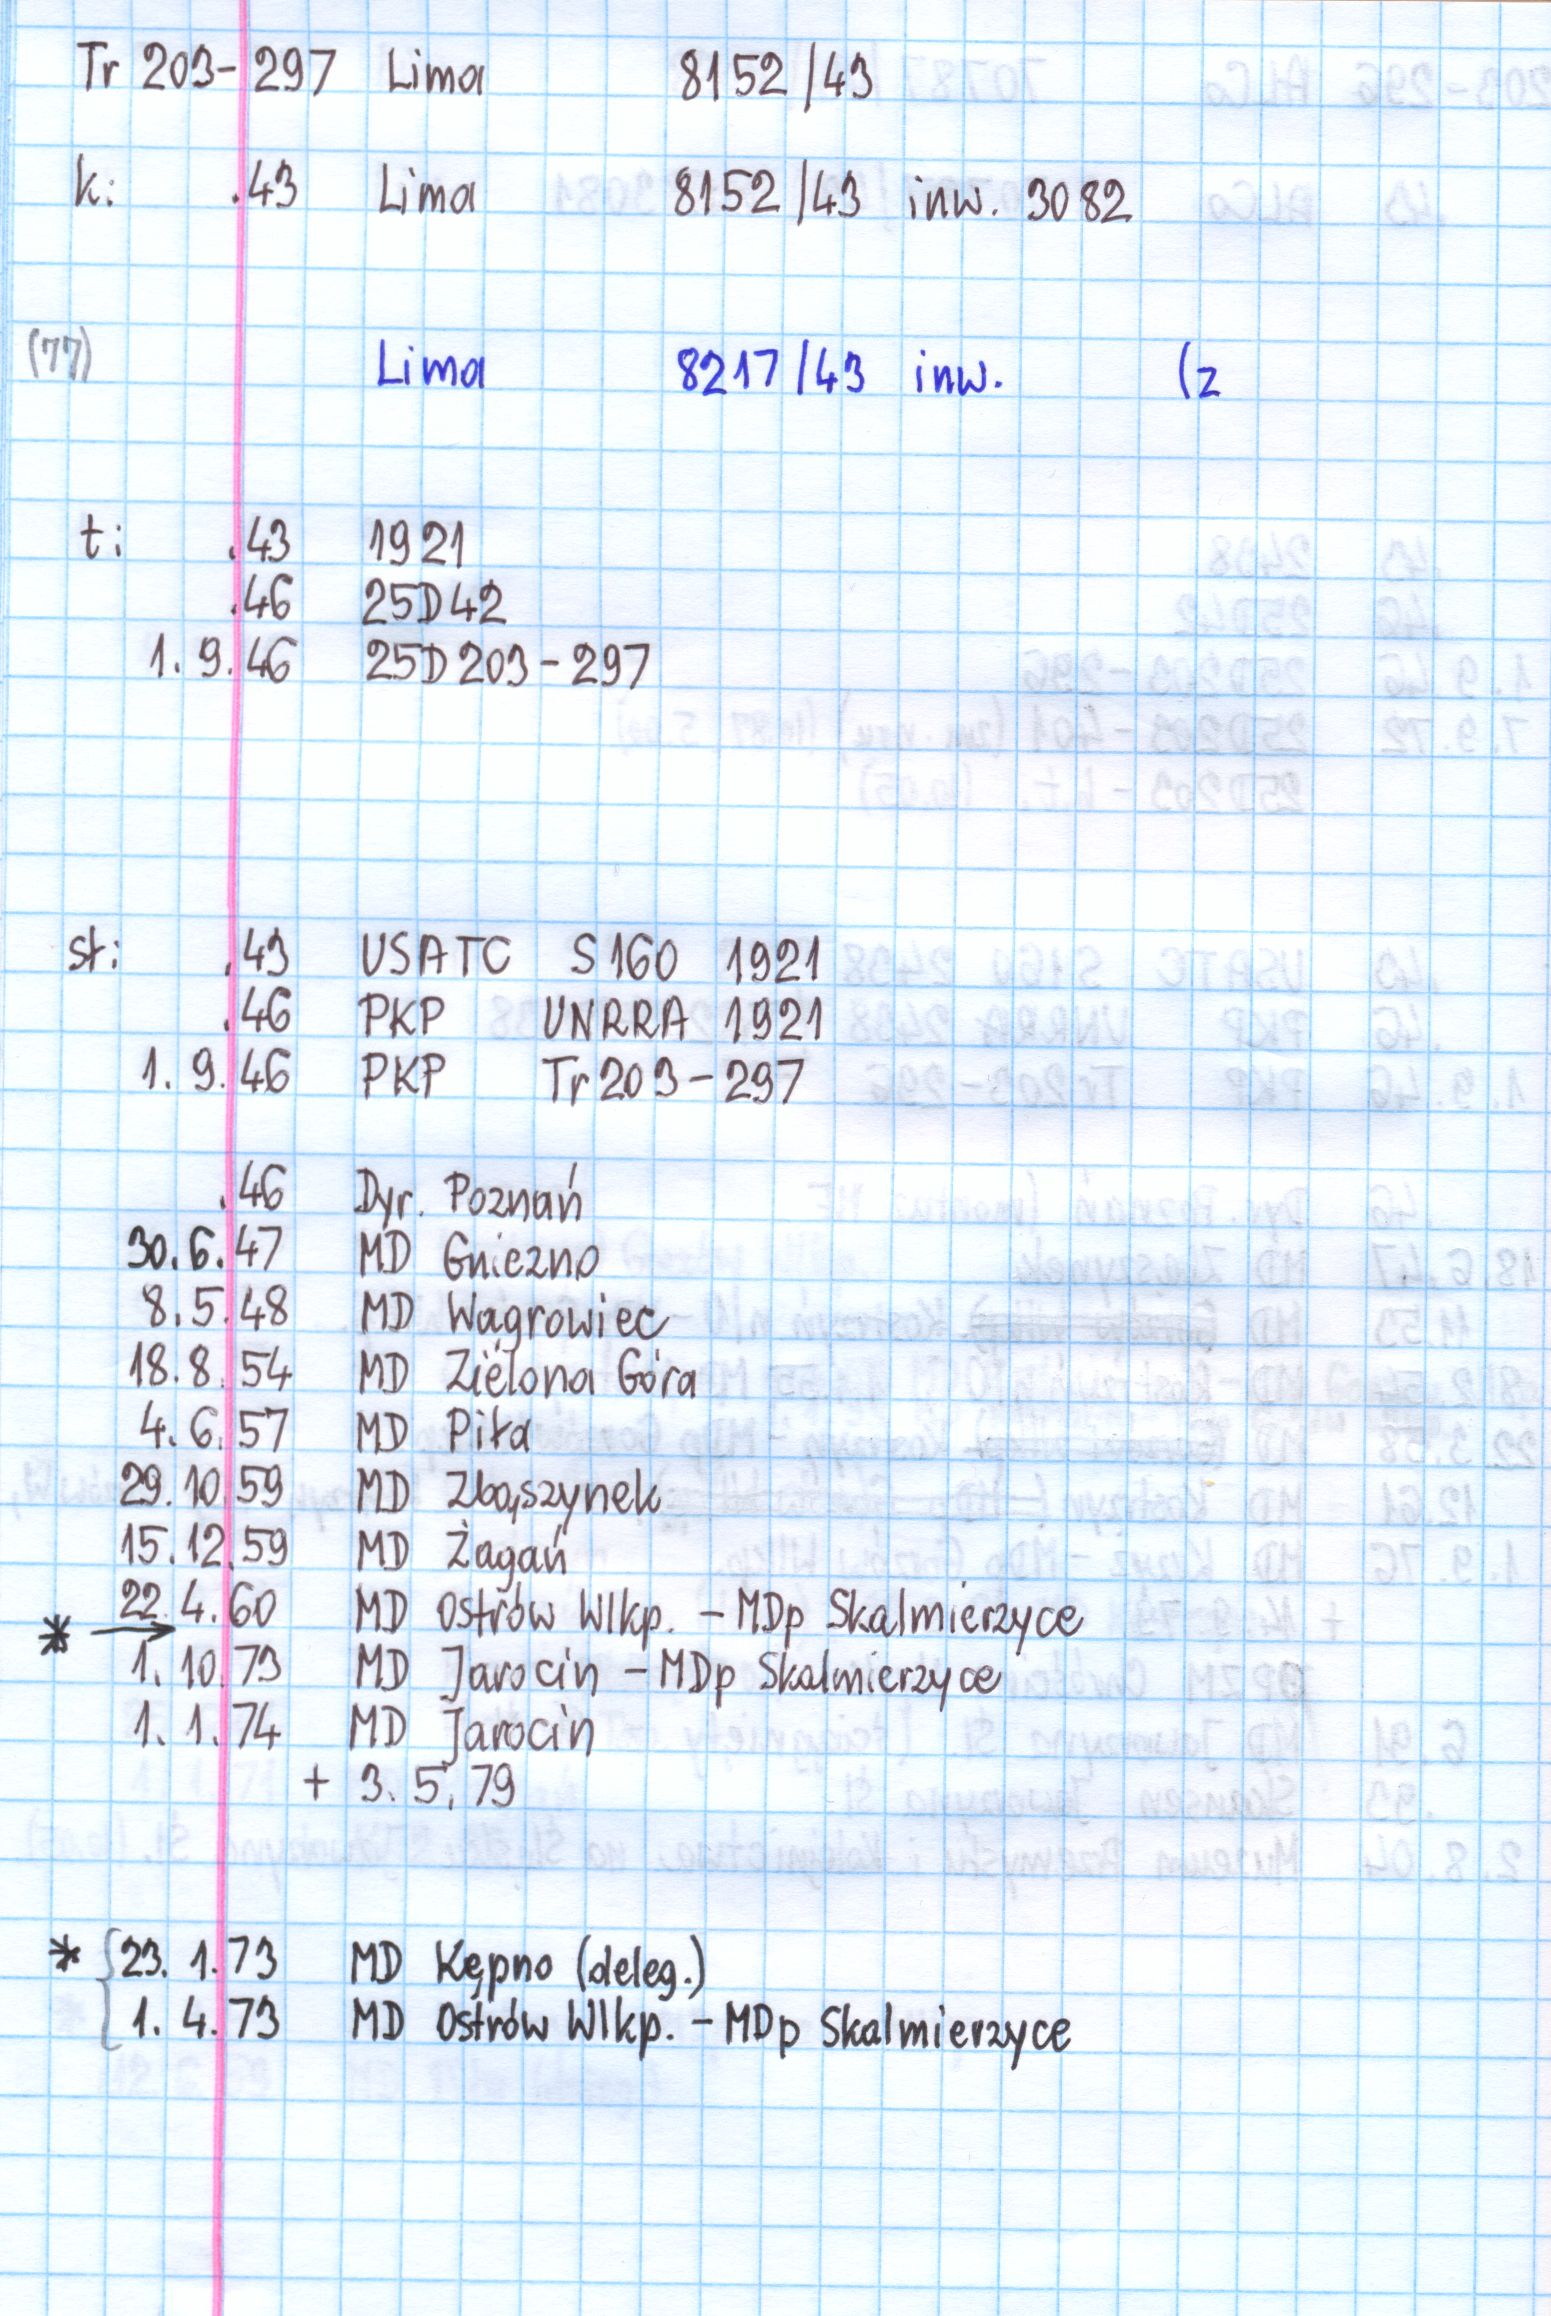 Tr 203-297 Lima 8152/43
k: .43 Lima 8152/43 inw. 3082
(77) Lima 8217/43 inw. (z
t: .43 1921
.46 25D42
1.9.46 25D203-297
st: .43 USATC S160 1921
.46 PKP UNRRA 1921
1.9.46 PKP Tr203-297
.46 Dyr. Poznań
30.6.47 MD Gniezno
8.5.48 MD Wągrowiec
18.8.54 MD Zielona Góra
4.6.57 MD Piła
29.10.59 MD Zbąszynek
15.12.59 MD Żagań
22.4.60 MD Ostrów Wlkp. - MDp Skalmierzyce
* →
1.10.73 MD Jarocin - MDp Skalmierzyce
1.1.74 MD Jarocin
+ 3.5.79
* { 23.1.73 MD Kępno (deleg.)
1.4.73 MD Ostrów Wlkp. - MDp Skalmierzyce